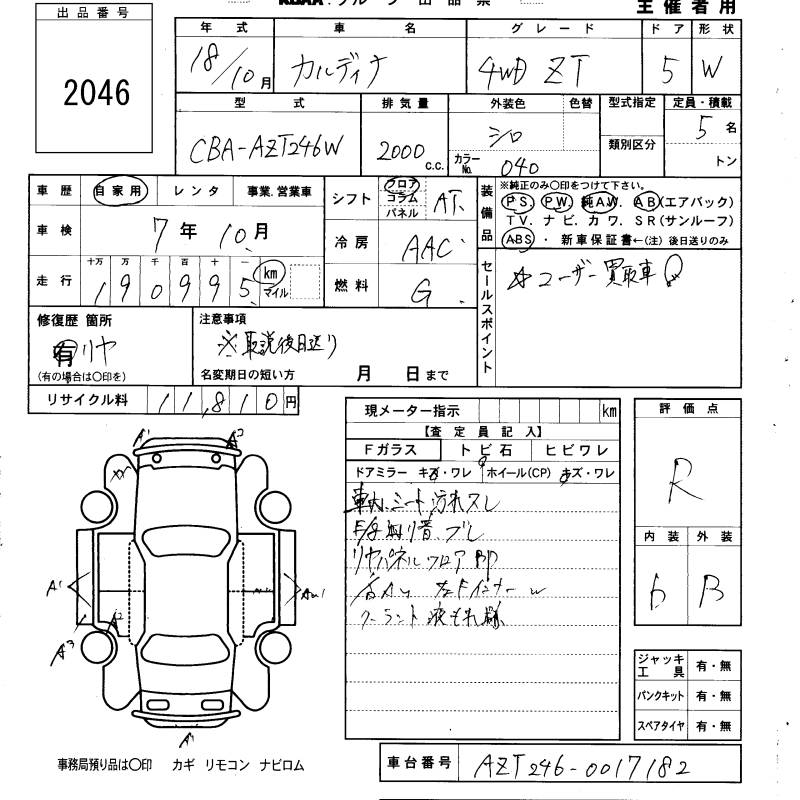 主催者用
出品番号
2046
年式 車名 グレード ドア 形状
18/10月 カルディナ 4WD ZT 5 W
型式 排気量 外装色 色替 型式指定 定員・積載
CBA-AZT246W 2000 c.c. シロ 類別区分 5名
カラーNo. 040 トン
車歴 自家用 レンタ 事業.営業車
車検 7年10月
走行 十万 万 千 百 十 一
190995 km マイル
シフト フロア コラム パネル AT
冷房 AAC
燃料 G
装備品 ※純正のみ○印をつけて下さい。
PS. PW. 純AW. AB(エアバック)
TV. ナビ. カワ. SR(サンルーフ)
ABS ・ 新車保証書←(注) 後日送りのみ
セールスポイント ☆ユーザー買取車
修復歴 箇所 注意事項
有 リヤ ※取説後日送り
(有の場合は○印を) 名変期日の短い方 月 日まで
リサイクル料 11,810円
現メーター指示 km
【査定員記入】
Fガラス トビ石 ヒビワレ
ドアミラー キズ・ワレ ホイール(CP) キズ・ワレ
車内シート汚れスレ
リヤパネルフロア
クーラント液もれ
評価点
R
内装 外装
B
A1 A2
A1 A2 A3
A1
ジャッキ工具 有・無
パンクキット 有・無
スペアタイヤ 有・無
事務局預り品は○印 カギ リモコン ナビロム
車台番号 AZT246-0017182